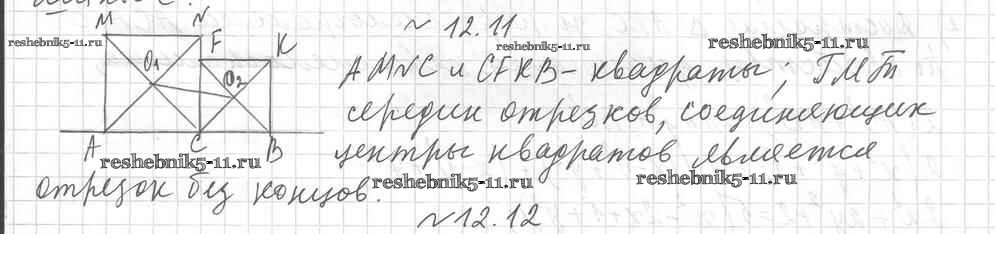 M N № 12.11
F K
AMNC и CFKB – квадраты; ГМТ
O₁ O₂
середин отрезков, соединяющих
A C B
центры квадратов является
отрезок без концов.
№ 12.12
reshebnik5-11.ru
reshebnik5-11.ru
reshebnik5-11.ru
reshebnik5-11.ru
reshebnik5-11.ru
reshebnik5-11.ru